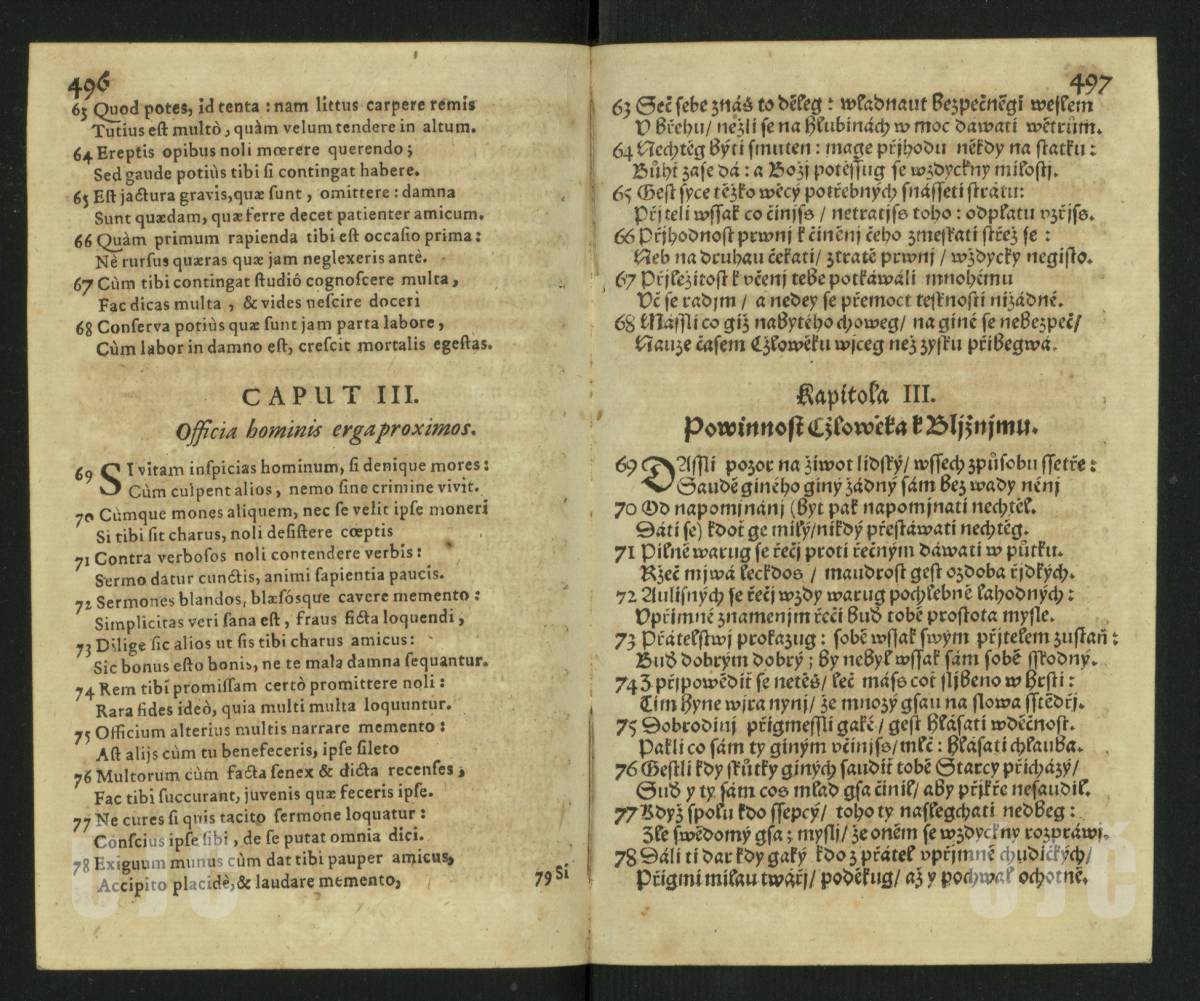 496
63 Quod potes, id tenta : nam littus carpere remis
Tutius eſt multò, quàm velum tendere in altum.
64 Ereptis opibus noli mœrere querendo ;
Sed gaude potiùs tibi ſi contingat habere.
65 Eſt jactura gravis, quæ ſunt , omittere : damna
Sunt quædam, quæ ferre decet patienter amicum.
66 Quàm primum rapienda tibi eſt occaſio prima :
Nè rurſus quæras quæ jam neglexeris antè.
67 Cùm tibi contingat ſtudiô cognoſcere multa ,
Fac dicas multa , & vides neſcire doceri
68 Conſerva potiùs quæ ſunt jam parta labore ,
Cùm labor in damno eſt, creſcit mortalis egeſtas.
CAPUT III.
Officia hominis erga proximos.
69 SI vitam inſpicias hominum, ſi denique mores :
Cùm culpent alios , nemo ſine crimine vivit.
70 Cùmque mones aliquem, nec ſe velit ipſe moneri
Si tibi ſit charus, noli deſiſtere cœptis
71 Contra verboſos noli contendere verbis :
Sermo datur cunctis, animi ſapientia paucis.
72 Sermones blandos, blæſósque cavere memento :
Simplicitas veri ſana eſt , fraus ficta loquendi ,
73 Dilige ſic alios ut ſis tibi charus amicus :
Sic bonus eſto bonis, ne te mala damna ſequantur.
74 Rem tibi promiſſam certò promittere noli :
Rara fides ideò, quia multi multa loquuntur.
75 Officium alterius multis narrare memento :
Aſt alijs cùm tu benefeceris, ipſe ſileto
76 Multorum cùm facta ſenex & dicta recenſes ,
Fac tibi ſuccurant, juvenis quæ feceris ipſe.
77 Ne cures ſi quis tacito ſermone loquatur :
Conſcius ipſe ſibi , de ſe putat omnia dici.
78 Exiguum munus cùm dat tibi pauper amicus,
Accipito placidè, & laudare memento,
79 Si
497
63 Seč ſebe znáš to děleg : wladnaut bezpečněgi weſlem
V břehu / nežli ſe na hlubinách w moc dáwati wětrům.
64 Nechtěg býti ſmuten : mage přjhodu někdy na ſtatku :
Bůhť zaſe dá : a Božj potěſſug ſe wždyckny miloſtj.
65 Geſt ſyce těžko wěcý potřebných ſnáſſeti ſtrátu :
Přjteli wſſak co činjſs / netratjſs toho : odplatu vzřjſs.
66 Přjhodnoſt prwnj k činěnj čeho zmeſkati ſtřež ſe :
Neb na druhau čekati / ztratě prwnj / wždycky negiſto.
67 Přjležitoſt k včenj tebe potkáwáli mnohému
Vč ſe radjm / a nedey ſe přemoct teſknoſti nižádné.
68 Máſſli co giž nabytého choweg / na giné ſe nebezpeč /
Nauze časem Cžlowěku wjceg než zyſku přibegwá.
Kapitola III.
Powinnoſt Cžlowěka k Bljžnjmu.
69 DAſſli pozor na žiwot lidſký / wſſech způſobu ſſetře :
Saudě giného giný žádný ſám bez wady nénj
70 Od napomjnánj (byť pak napomjnati nechtěl.
Dáti ſe) kdoť ge milý / nikdý přeſtáwati nechtěg.
71 Pilně warug ſe řečj proti řečným dáwati w půtku.
Ržeč mjwá leckdos / maudroſt geſt ozdoba řjdkých.
72 Auliſných ſe řečj wždy warug pochlebně lahodných :
Vpřimné znamenjm řeči buď tobě proſtota myſle.
73 Přátelſtwj prokazug : ſobě wſſak ſwým přjtelem zuſtaň :
Buď dobrým dobrý ; by nebyl wſſak ſám ſobě ſſkodný.
74 Z přjpowědiť ſe netěš / leč máſs coť ſljbeno w hrſti :
Tjm hyne wjra nynj / že mnozý gſau na ſlowa ſſtědřj.
75 Dobrodinj přigmeſſli gaké / geſt hláſati wděčnoſt.
Pakli co ſám ty giným včinjſs / mlč : hláſati chlauba.
76 Geſtli kdy ſkůtky giných ſaudiť tobě Starcy přicházý /
Suď y ty ſám cos mlad gſa činil / aby přjkře neſaudil.
77 Když ſpolu kdo ſſepcý / toho ty naſlegchati nedbeg :
Zle ſwědomý gſa ; myſlj / že oněm ſe wždyckny rozpráwj.
78 Dáli ti dar kdy gaký kdo z přátel vpřjmně chudičkých /
Přigmi milau twářj / poděkug / až y pochwal ochotně.